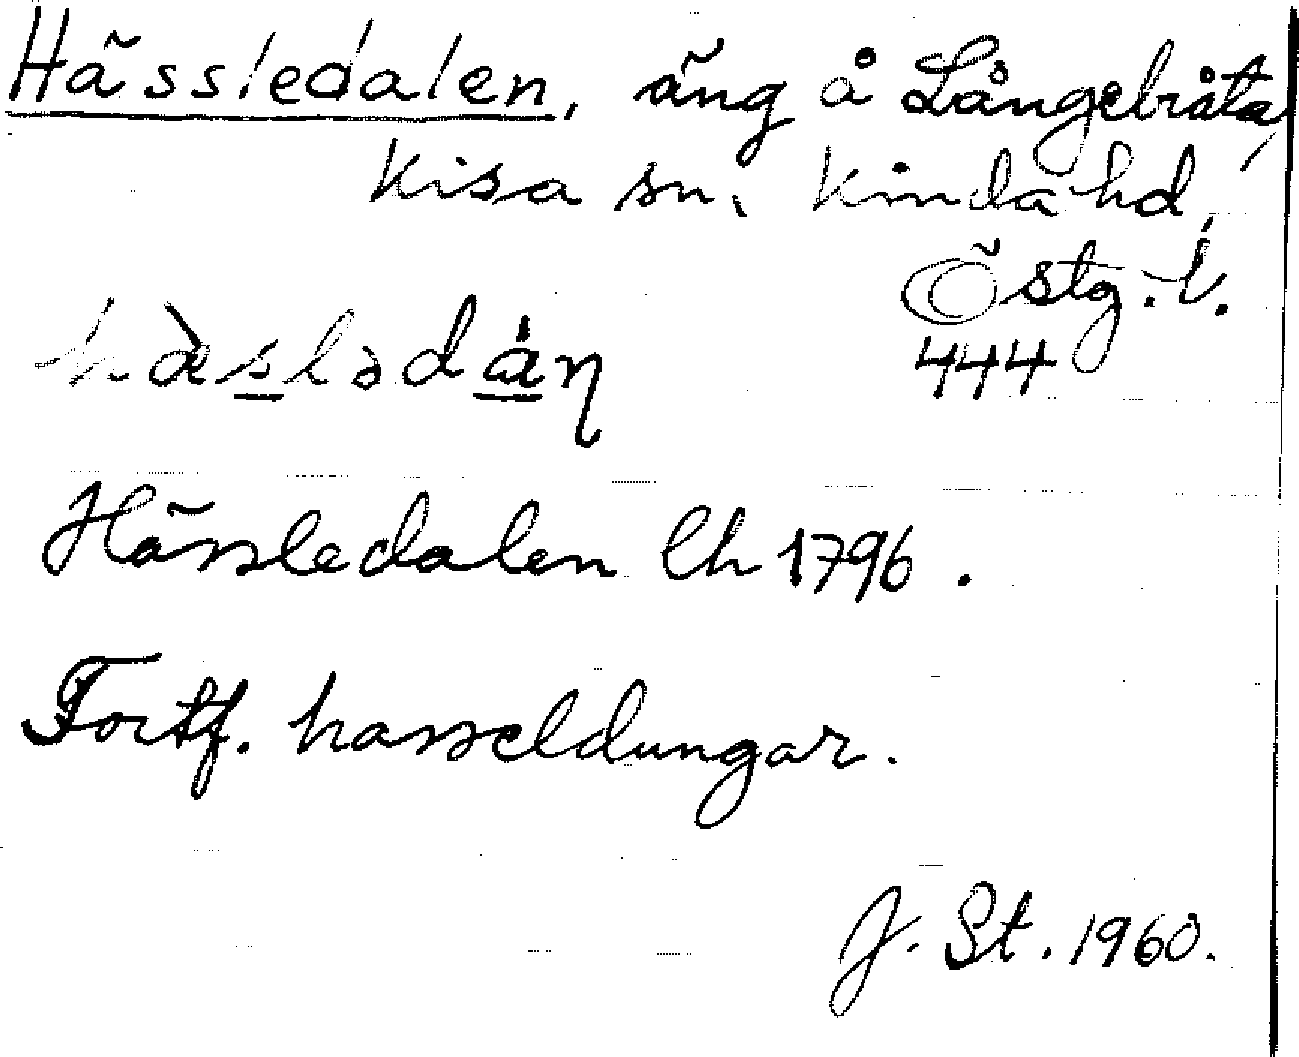 Hässledalen, äng å Långebråta,
Kisa sn. Kinda hd,
Östg. l.
444
hàslədán
Hässledalen Ch 1796.
Fortf. hasseldungar.
J. St. 1960.